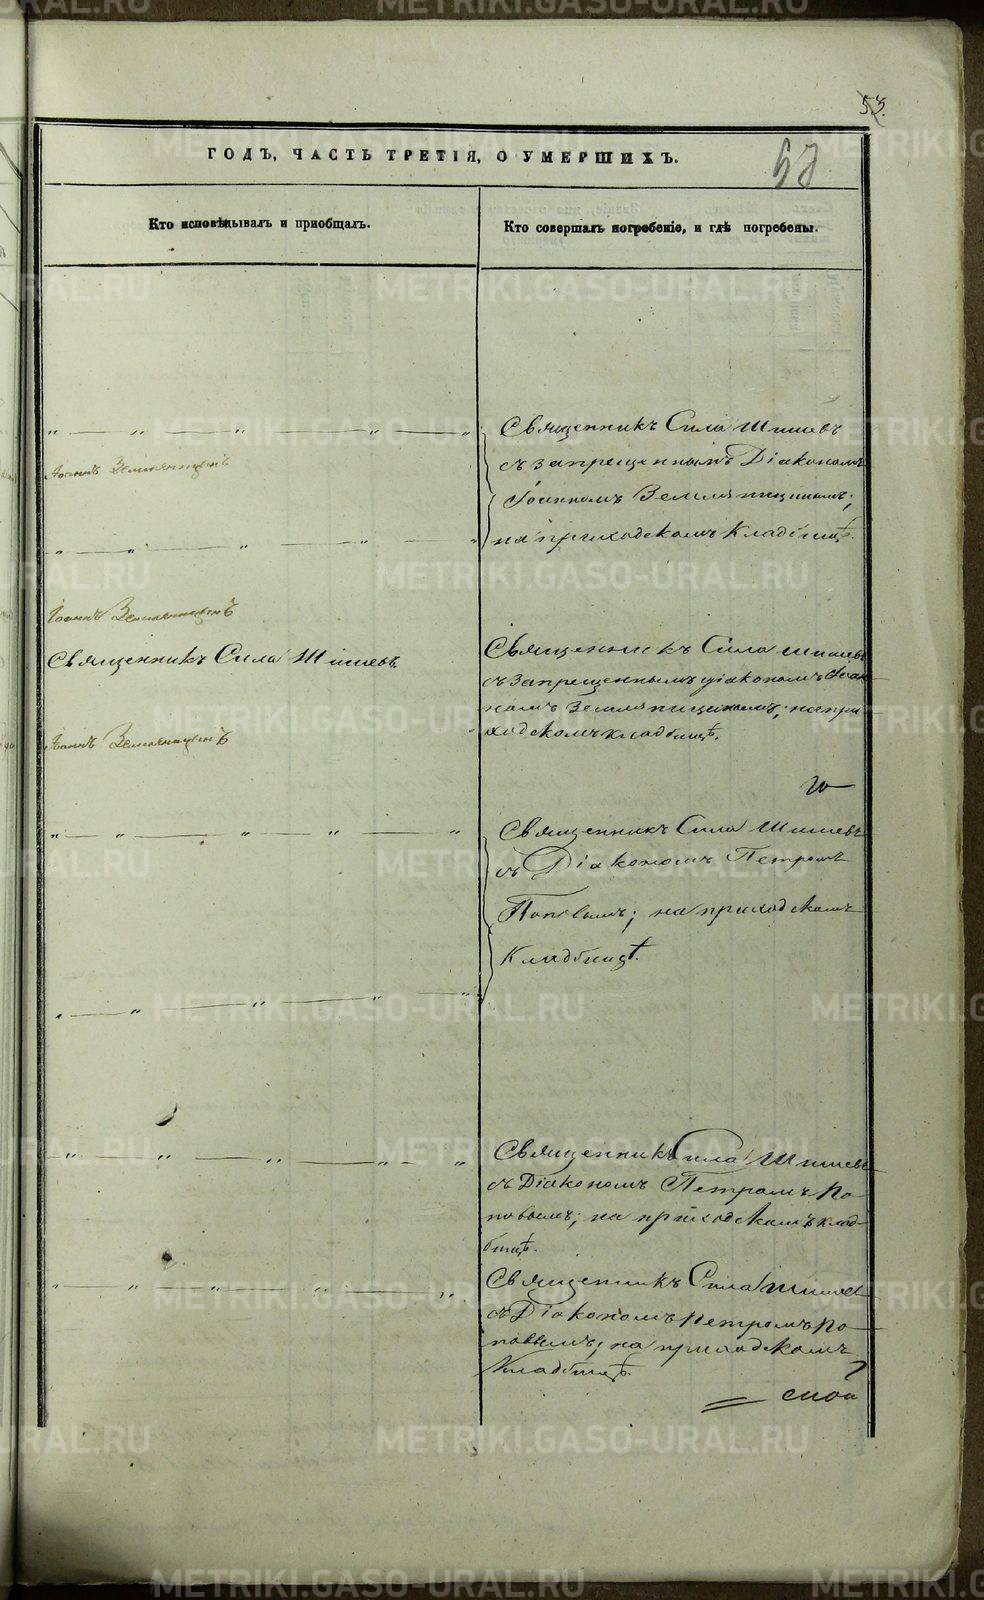 53.
58
ГОДЪ, ЧАСТЬ ТРЕТІЯ, О УМЕРШИХЪ.
Кто исповѣдывалъ и пріобщалъ.
Кто совершалъ погребеніе, и гдѣ погребены.
Священникъ Сила Шишевъ
съ запрещеннымъ Діакономъ
Іоанномъ Земляницинымъ;
на приходскомъ кладбищѣ.
Іоаннъ Земляницынъ
Іоаннъ Земляницынъ
Священникъ Сила Шишевъ
Іоаннъ Земляницынъ
Священникъ Сила Шишевъ
съ запрещеннымъ діакономъ Іоан
номъ Земляницинымъ; на при
ходскомъ кладбищѣ.
Священникъ Сила Шишевъ
съ Діакономъ Петромъ
Поповымъ; на приходскомъ
Кладбищѣ.
Священникъ Сила Шишевъ
съ Діакономъ Петромъ По-
повымъ; на приходскомъ клад-
бищѣ.
Священникъ Сила Шишев
съ Діакономъ Петромъ По-
повымъ; на приходскомъ
Кладбищѣ.
METRIKI.GASO-URAL.RU